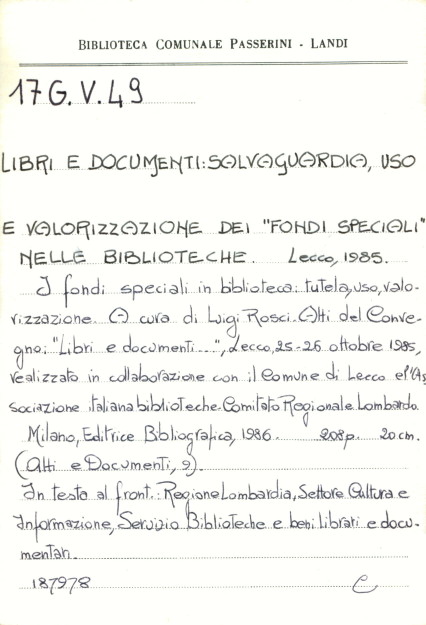 BIBLIOTECA COMUNALE PASSERINI - LANDI
17 G. V. 49
LIBRI E DOCUMENTI: SALVAGUARDIA, USO
E VALORIZZAZIONE DEI "FONDI SPECIALI"
NELLE BIBLIOTECHE. Lecco, 1985.
I fondi speciali in biblioteca: tutela, uso, valo-
rizzazione. A cura di Luigi Rosci. Atti del Conve-
gno: "Libri e documenti...", Lecco, 25-26 ottobre 1985,
realizzato in collaborazione con il Comune di Lecco e l'As
sociazione italiana biblioteche. Comitato Regionale Lombardo.
Milano, Editrice Bibliografica, 1986. 208 p. 20 cm.
(Atti e Documenti, 2).
In testa al front.: Regione Lombardia, Settore Cultura e
Informazione, Servizio Biblioteche e beni librari e docu-
mentari.
187978 C